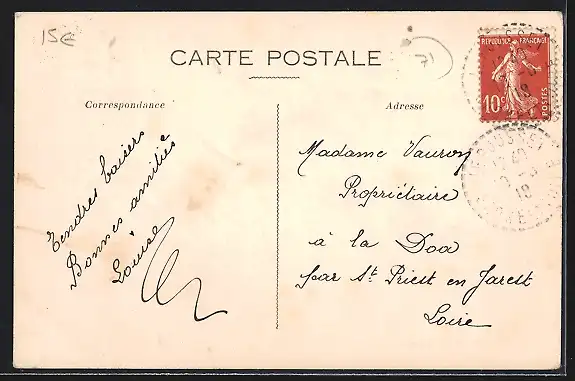 15€
71
CARTE POSTALE
RÉPUBLIQUE FRANÇAISE
10c
POSTES
Correspondance
Adresse
Tendres baisers
Bonnes amitiés
Louise
Madame Vauron
Propriétaire
à la Doa
par St Priest en Jarest
Loire